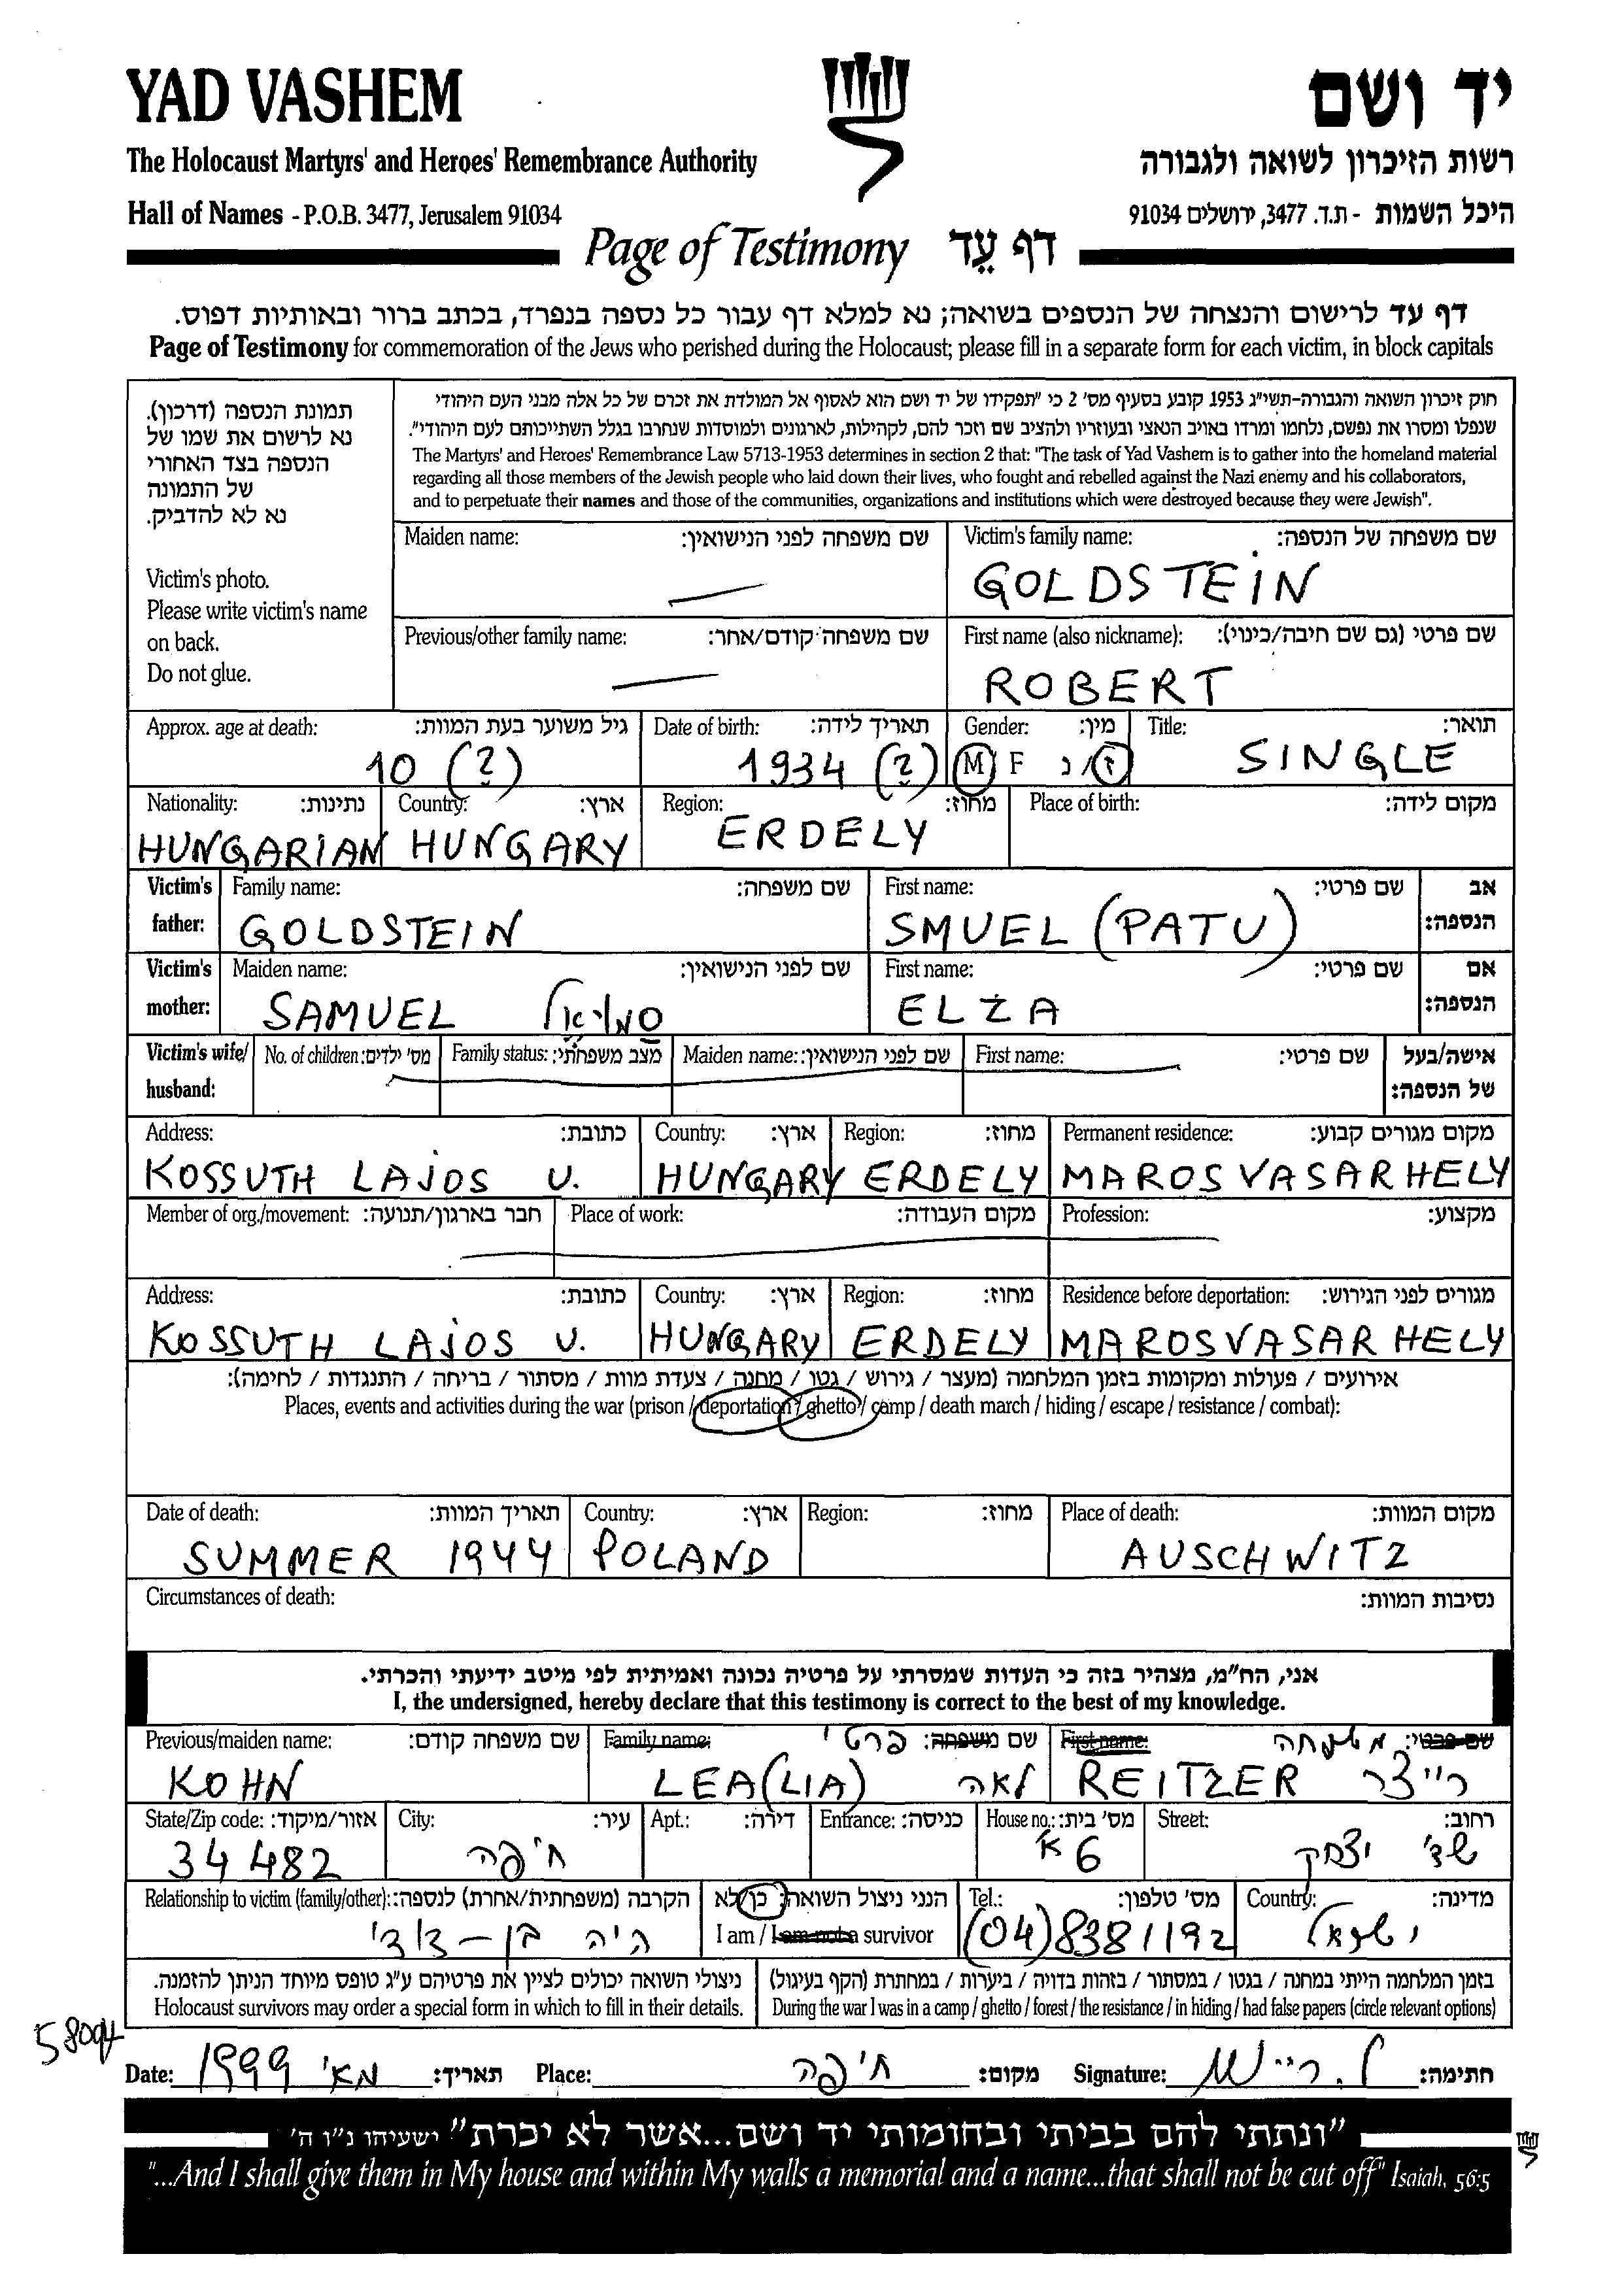 YAD VASHEM
יד ושם
The Holocaust Martyrs' and Heroes' Remembrance Authority
רשות הזיכרון לשואה ולגבורה
Hall of Names - P.O.B. 3477, Jerusalem 91034
היכל השמות - ת.ד. 3477, ירושלים 91034
Page of Testimony דף עֵד
דף עד לרישום והנצחה של הנספים בשואה; נא למלא דף עבור כל נספה בנפרד, בכתב ברור ובאותיות דפוס.
Page of Testimony for commemoration of the Jews who perished during the Holocaust; please fill in a separate form for each victim, in block capitals
תמונת הנספה (דרכון).
נא לרשום את שמו של
הנספה בצד האחורי
של התמונה
נא לא להדביק.
Victim's photo.
Please write victim's name
on back.
Do not glue.
חוק זיכרון השואה והגבורה-תשי"ג 1953 קובע בסעיף מס' 2 כי "תפקידו של יד ושם הוא לאסוף אל המולדת את זכרם של כל אלה מבני העם היהודי
שנפלו ומסרו את נפשם, נלחמו ומרדו באויב הנאצי ובעוזריו ולהציב שם וזכר להם, לקהילות, לארגונים ולמוסדות שנחרבו בגלל השתייכותם לעם היהודי".
The Martyrs' and Heroes' Remembrance Law 5713-1953 determines in section 2 that: "The task of Yad Vashem is to gather into the homeland material
regarding all those members of the Jewish people who laid down their lives, who fought and rebelled against the Nazi enemy and his collaborators,
and to perpetuate their names and those of the communities, organizations and institutions which were destroyed because they were Jewish".
Maiden name: שם משפחה לפני הנישואין:
Victim's family name: שם משפחה של הנספה:
GOLDSTEIN
Previous/other family name: שם משפחה קודם/אחר:
First name (also nickname): שם פרטי (גם שם חיבה/כינוי):
ROBERT
Approx. age at death: גיל משוער בעת המוות: Date of birth: תאריך לידה: Gender: מין: Title: תואר:
10 (?) 1934 (?) M F ז/נ SINGLE
Nationality: נתינות: Country: ארץ: Region: מחוז: Place of birth: מקום לידה:
HUNGARIAN HUNGARY ERDELY
Victim's father: Family name: שם משפחה: First name: שם פרטי: אב הנספה:
GOLDSTEIN SMUEL (PATU)
Victim's mother: Maiden name: שם לפני הנישואין: First name: שם פרטי: אם הנספה:
SAMUEL סמואל ELZA
Victim's wife/ husband: No. of children: מס' ילדים: Family status: מצב משפחתי: Maiden name: שם לפני הנישואין: First name: שם פרטי: אישה/בעל של הנספה:
Address: כתובת: Country: ארץ: Region: מחוז: Permanent residence: מקום מגורים קבוע:
KOSSUTH LAJOS U. HUNGARY ERDELY MAROSVASARHELY
Member of org./movement: חבר בארגון/תנועה: Place of work: מקום העבודה: Profession: מקצוע:
Address: כתובת: Country: ארץ: Region: מחוז: Residence before deportation: מגורים לפני הגירוש:
KOSSUTH LAJOS U. HUNGARY ERDELY MAROSVASARHELY
אירועים / פעולות ומקומות בזמן המלחמה (מעצר / גירוש / גטו / מחנה / צעדת מוות / מסתור / בריחה / התנגדות / לחימה):
Places, events and activities during the war (prison / deportation / ghetto / camp / death march / hiding / escape / resistance / combat):
Date of death: תאריך המוות: Country: ארץ: Region: מחוז: Place of death: מקום המוות:
SUMMER 1944 POLAND AUSCHWITZ
Circumstances of death: נסיבות המוות:
אני, הח"מ, מצהיר בזה כי העדות שמסרתי על פרטיה נכונה ואמיתית לפי מיטב ידיעתי והכרתי.
I, the undersigned, hereby declare that this testimony is correct to the best of my knowledge.
Previous/maiden name: שם משפחה קודם: Family name: שם משפחה: פרטי First name: שם פרטי: משפחה
KOHN LEA(LIA) לאה REITZER רייצר
State/Zip code: אזור/מיקוד: City: עיר: Apt.: דירה: Entrance: כניסה: House no.: מס' בית: Street: רחוב:
34482 חיפה 6א שד' יצחק
Relationship to victim (family/other): הקרבה (משפחתית/אחרת) לנספה: הנני ניצול השואה: כן/לא Tel.: מס' טלפון: Country: מדינה:
היה בן-דודי I am / I am not a survivor (04)8381192 ישראל
ניצולי השואה יכולים לציין את פרטיהם ע"ג טופס מיוחד הניתן להזמנה.
Holocaust survivors may order a special form in which to fill in their details.
בזמן המלחמה הייתי במחנה / בגטו / במסתור / בזהות בדויה / ביערות / במחתרת (הקף בעיגול)
During the war I was in a camp / ghetto / forest / the resistance / in hiding / had false papers (circle relevant options)
58094
Date: 1999 מאי תאריך: Place: חיפה מקום: Signature: חתימה:
"ונתתי להם בביתי ובחומותי יד ושם...אשר לא יכרת" ישעיהו נ"ו ה'
"...And I shall give them in My house and within My walls a memorial and a name...that shall not be cut off" Isaiah, 56:5